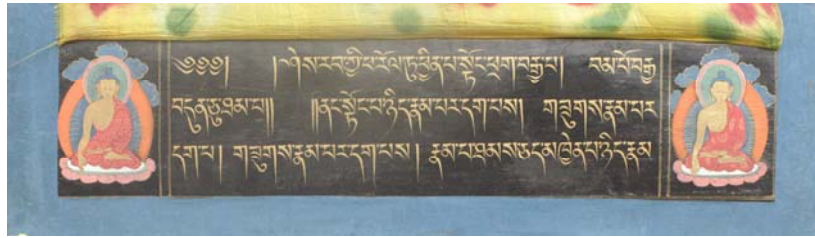 ༄༅༅། །ཤེས་རབ་ཀྱི་ཕ་རོལ་ཏུ་ཕྱིན་པ་སྟོང་ཕྲག་བརྒྱ་པ། བམ་པོ་བརྒྱ
བདུན་ཅུ་ཐམ་པ།། །།ནང་སྟོང་པ་ཉིད་རྣམ་པར་དག་པས། གཟུགས་རྣམ་པར
དག་པ། གཟུགས་རྣམ་པར་དག་པས། རྣམ་པ་ཐམས་ཅད་མཁྱེན་པ་ཉིད་རྣམ